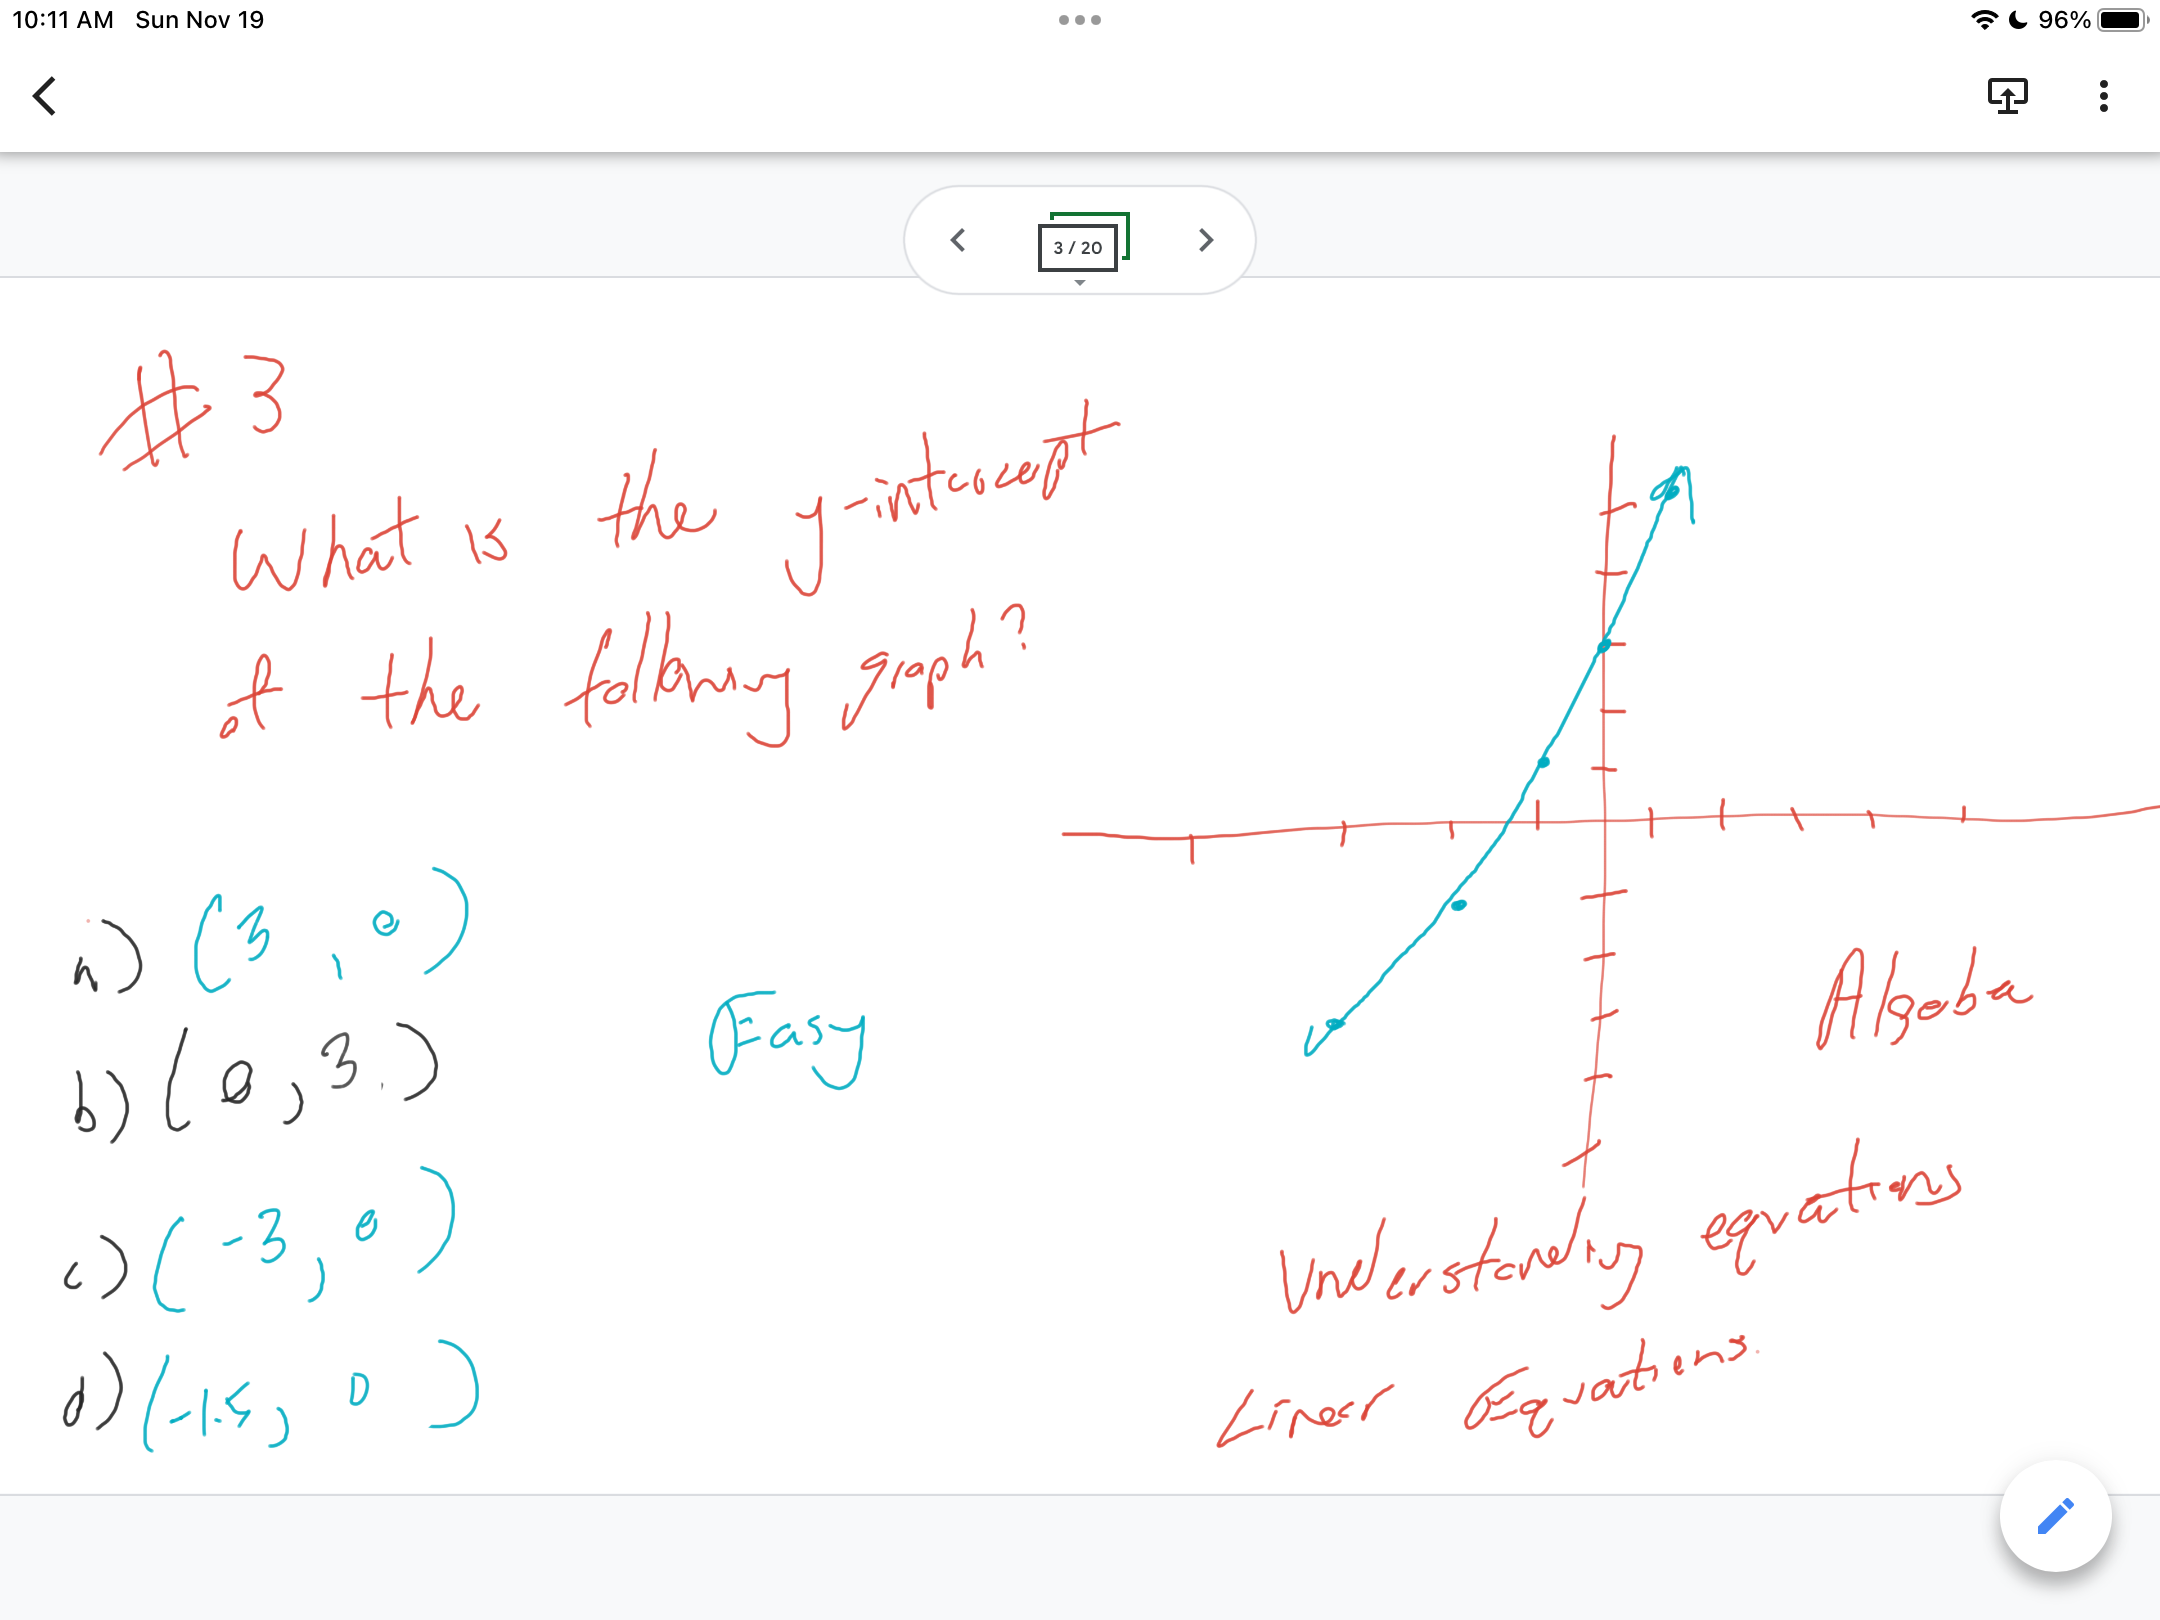 10:11 AM Sun Nov 19
96%
3 / 20
# 3
What is the y-intercept
of the following graph?
a) (3, 0)
b) (0, 3.)
c) (-3, 0)
d) (-1.5, 0)
Easy
Algeba
Understanding equations
Linear Equations.